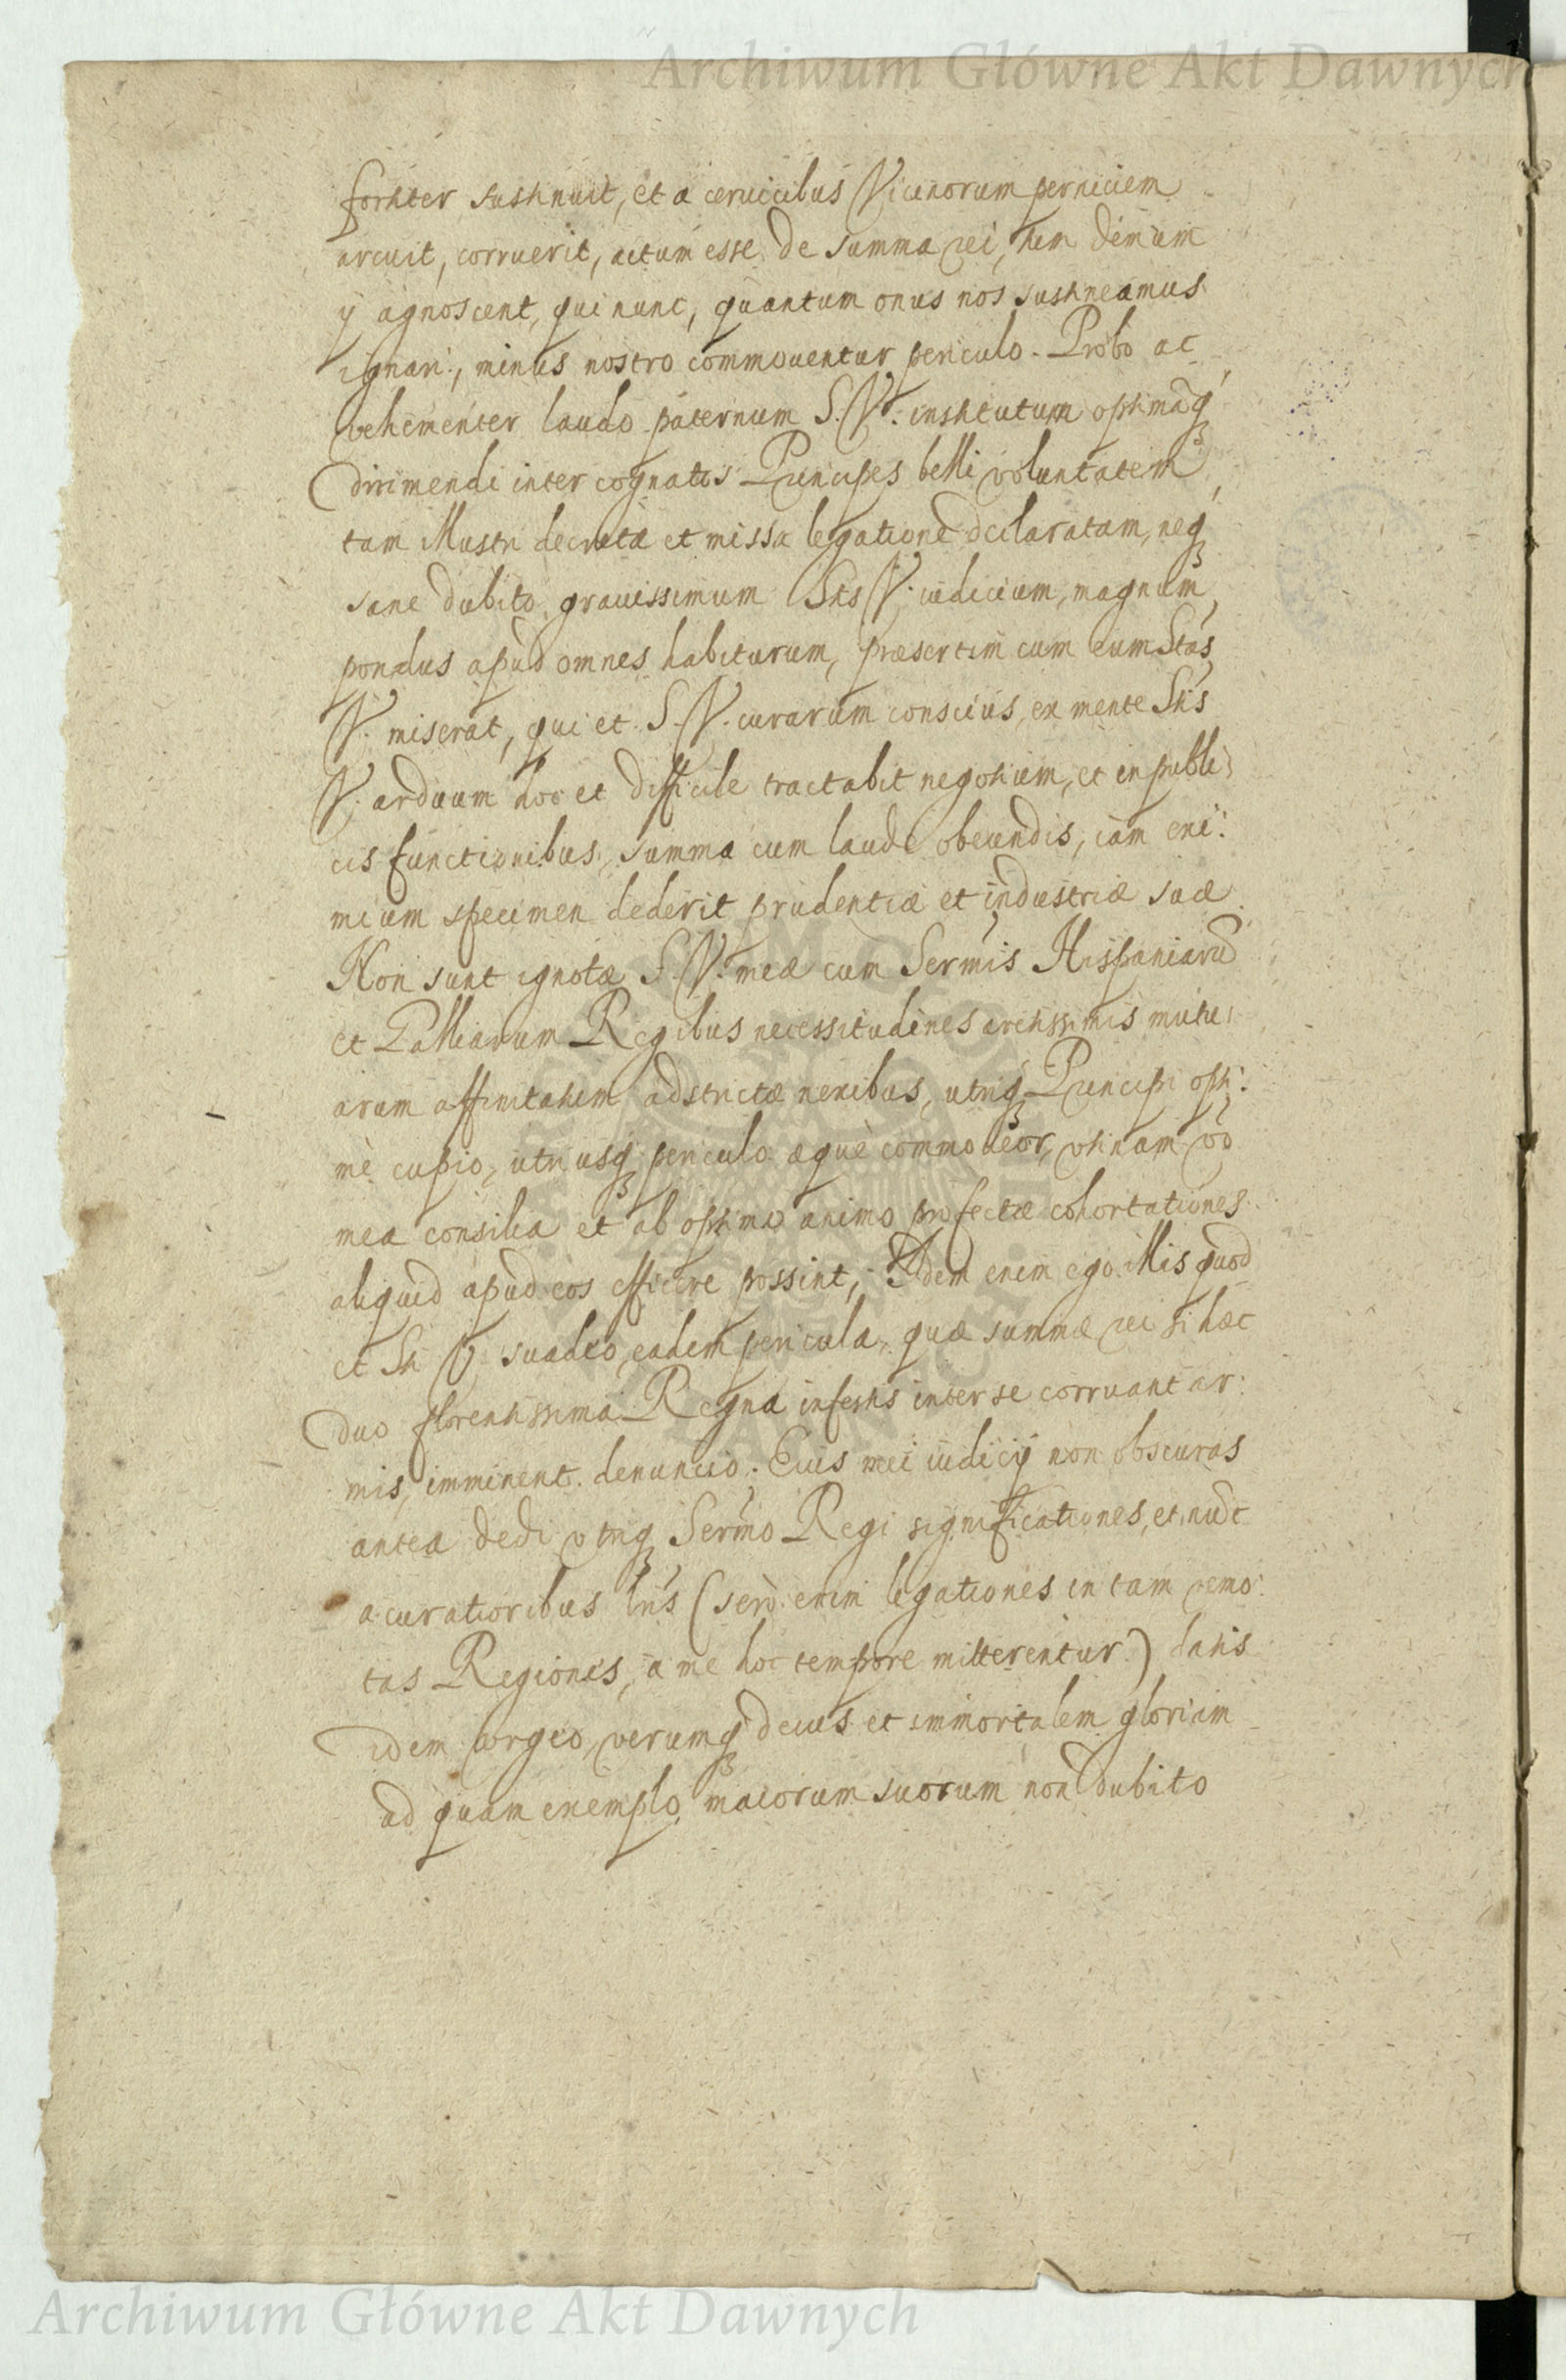 Archiwum Główne Akt Dawnych
fortiter sustinuit, et a ceruicibus Vicinorum perniciem
arcuit, corruerit, actum esse de summa rei, tum demum
ij agnoscent, qui nunc, quantum onus nos sustineamus
ignari, minus nostro commouentur periculo. Probo ac
vehementer laudo paternum S. V. institutum optimaq́
dirimendi inter cognatos Principes belli voluntatem
tam illustri decreta et missa legatione declaratam, neq́
sane dubito grauissimum Sťis V. iudicium, magnum
pondus apud omnes habiturum, præsertim cum eum Stas
V. miserat, qui et S. V. curarum conscius, ex mente Sťis
V. arduum hoc et difficile tractabit negotium, et in publi:
cis functionibus, summa cum laude obeundis, iam exi:
mium specimen dederit prudentiæ et industriæ suæ.
Non sunt ignotæ S. V. meæ cum Sermis Hispaniarū
et Galliarum Regibus necessitudines arctissimis mutu:
arum affinitatum adstrictæ nexibus, utriq́ Principi opti:
mè cupio, utriusq́ periculo æquè commoueor, utinam vō
mea consilia et ab optimo animo profectæ cohortationes
aliquid apud eos efficere possint, Idem enim ego illis quod
et Sti V. suadeo, eadem pericula, quæ summæ rei si hæc
duo florentissima Regna infestis inter se corruant ar:
mis, imminent denuncio. Eius mei iudicij non obscuras
antea dedi vtriq́ Sermo Regi significationes, et nūc
acuratioribus lr̃is (serò enim legationes in tam remo:
tas Regiones, a me hoc tempore mitterentur) datis
idem vrgeo, verumq́ decus et immortalem gloriam
ad quam exemplo maiorum suorum non dubito
Archiwum Główne Akt Dawnych